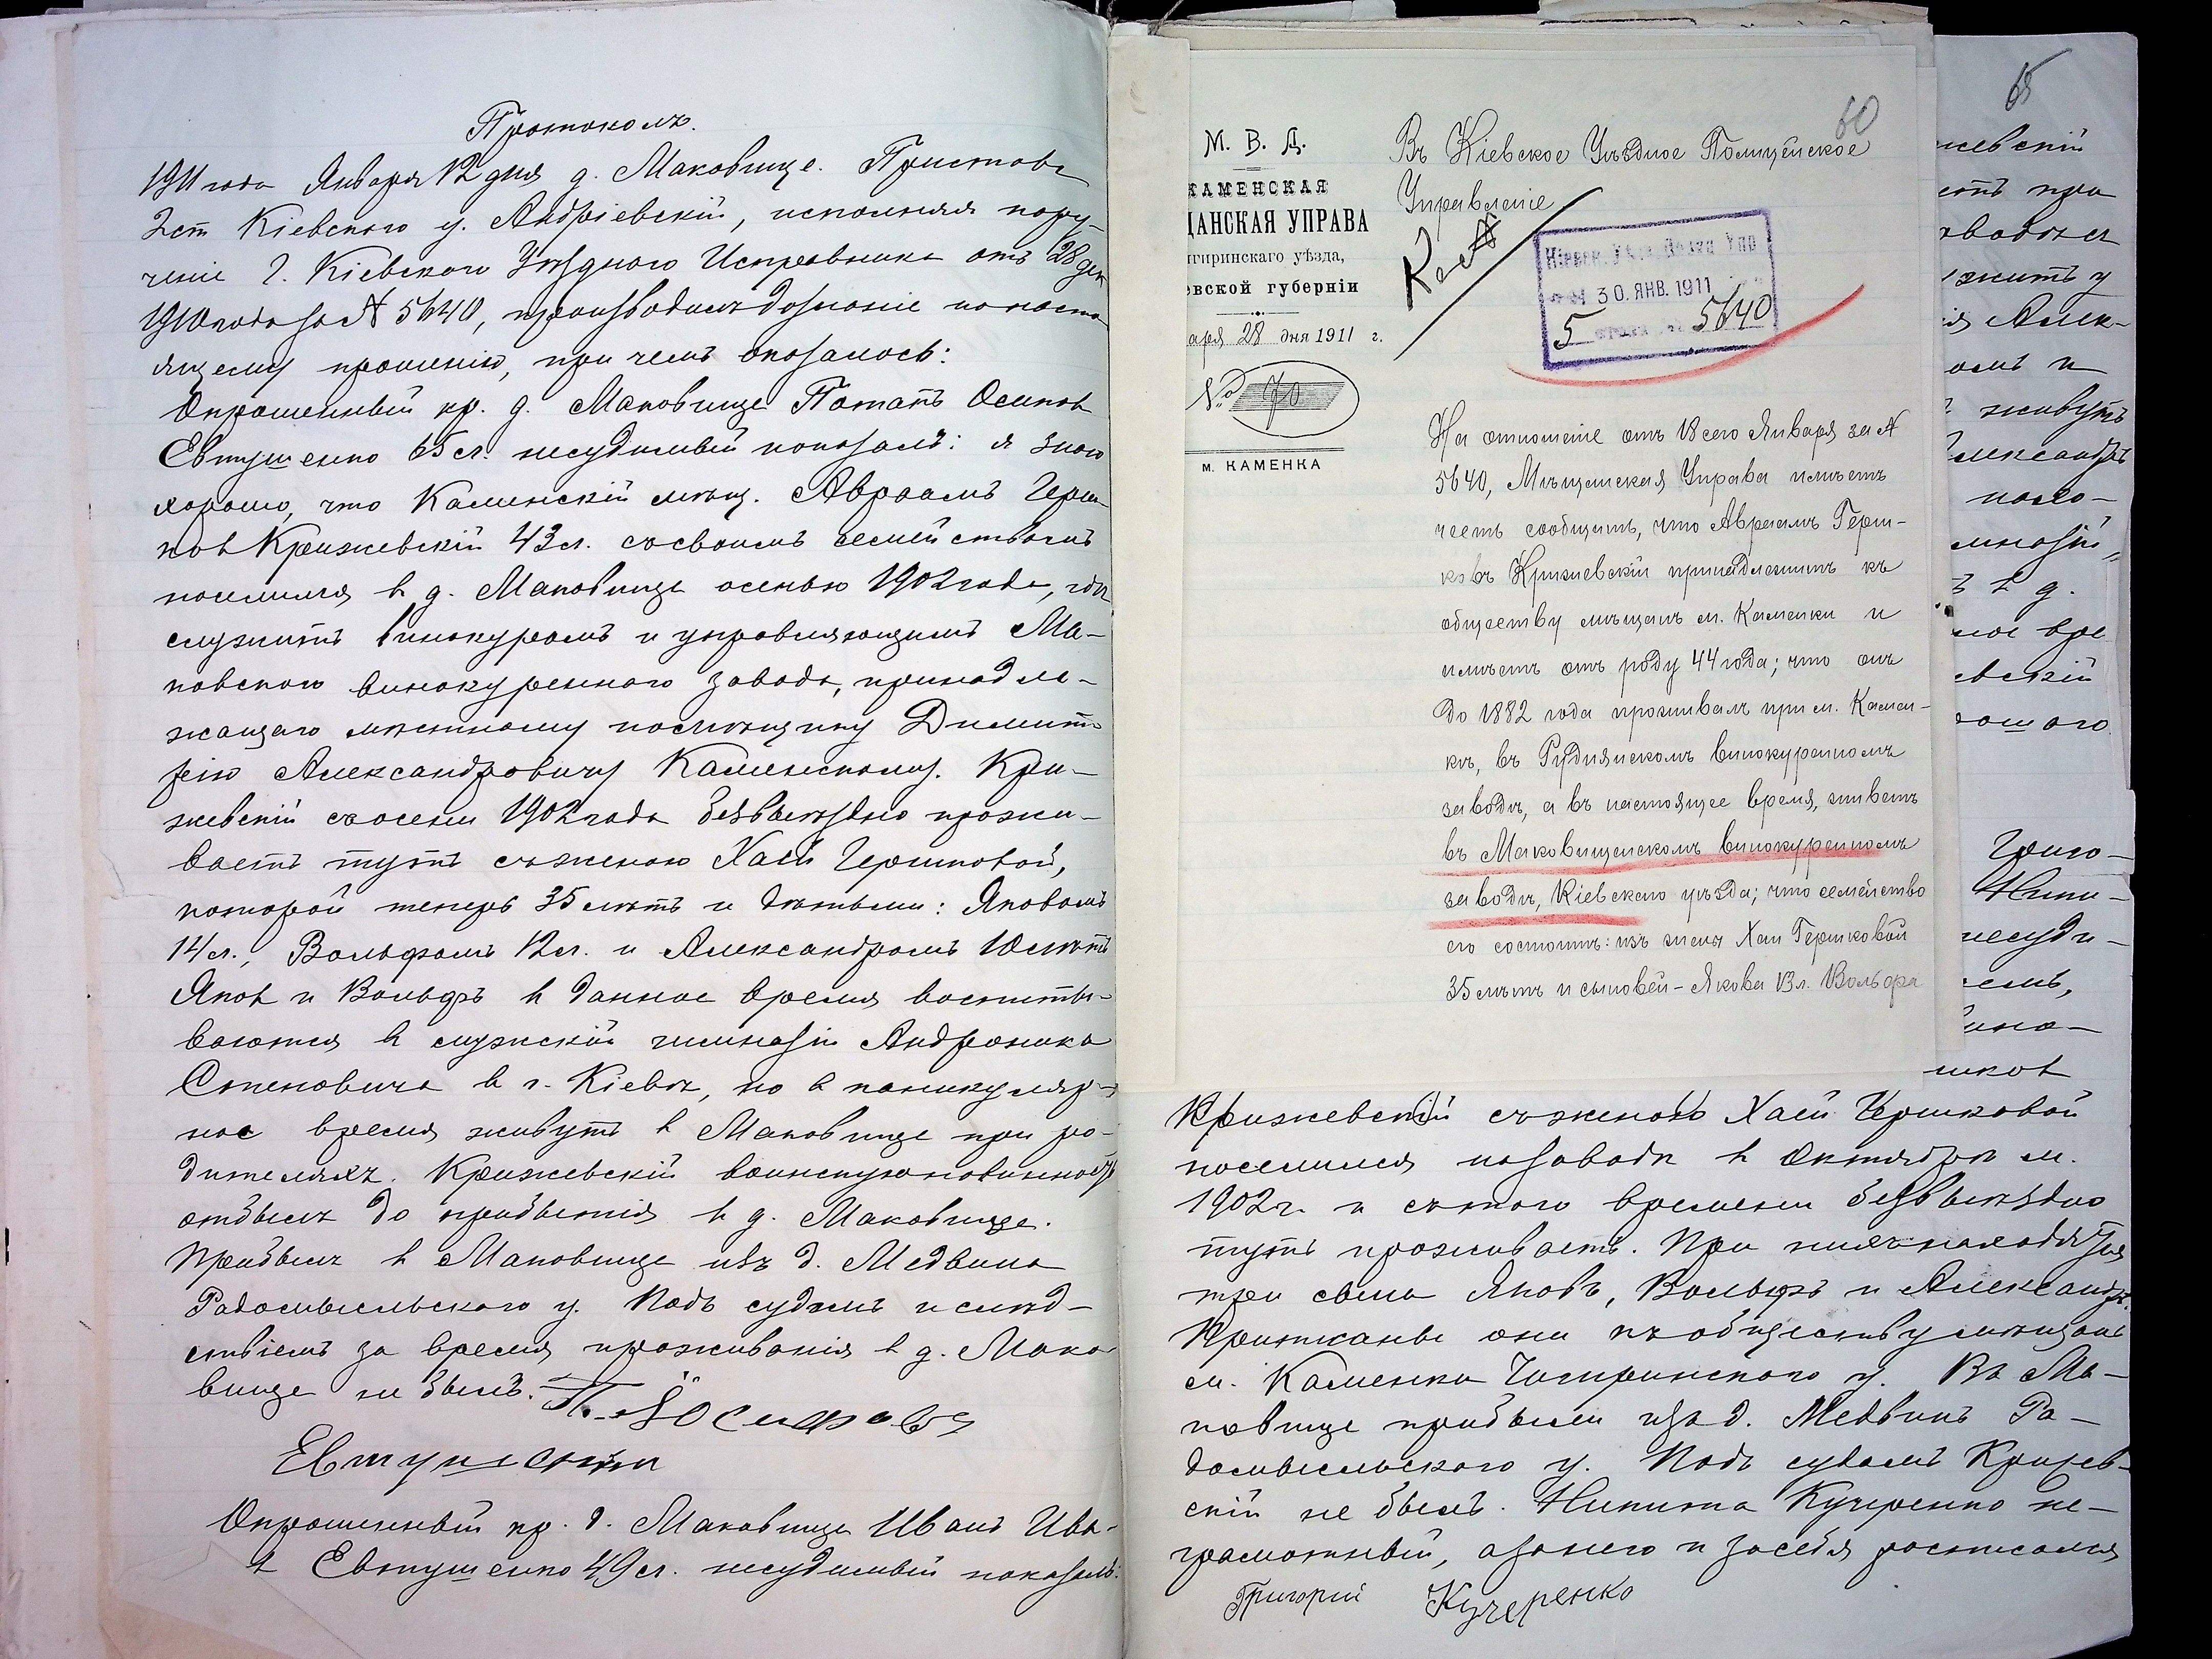 Протоколъ.
1911 года Января 12 дня д. Маковище. Приставъ
2 ст Кіевскаго у. Андріевскій, исполняя пору-
ченіе Г. Кіевскаго Уѣзднаго Исправника отъ 28 дек
1910 года за № 5640, производилъ дознаніе по насто-
ящему прошенію, при чемъ оказалось:
Опрошенный кр. д. Маковище Потапъ Осиповъ
Евтушенко 65 л. несудимый показалъ: я знаю
хорошо, что Каменскій мѣщ. Авраамъ Герш-
ковъ Крижевскій 43 л. со своимъ семействомъ
поселился въ д. Маковище осенью 1902 года, гдѣ
служитъ винокуромъ и управляющимъ Ма-
ковского винокуреннаго завода, принадле-
жащаго мѣстному помѣщику Димит-
рію Александровичу Каменскому. Кри-
жевскій съ осени 1902 года безвыѣздно прожи-
ваетъ тутъ съ женою Хаей Гершковой,
которой теперь 35 лѣтъ и дѣтьми: Яковомъ
14 л., Вольфомъ 12 л. и Александромъ 10 лѣтъ
Яковъ и Вольфъ въ данное время воспиты-
ваются въ мужской гимназіи Андроника
Степовича въ г. Кіевѣ, но в каникуляр-
ное время живутъ въ Маковище при ро-
дителяхъ. Крижевскій воинскую повинность
отбылъ до прибытія въ д. Маковище.
Прибылъ въ Маковище изъ д. Медвина
Радомысльского у. Подъ судомъ и слѣд-
ствіемъ за время проживанія въ д. Мако-
вище не былъ. П. Іосифовъ
Евтушенко
Опрошенный кр. д. Маковище Иванъ Ива-
въ Евтушенко 49 л. несудимый показалъ:
60
М. В. Д.
КАМЕНСКАЯ
ЩАНСКАЯ УПРАВА
игиринскаго уѣзда,
евской губерніи
аря 28 дня 1911 г.
№ 70
м. КАМЕНКА
Въ Кіевское Уѣздное Полицейское
Управленіе
Кіевск. Уѣзд. Полиц. Упр
30. ЯНВ. 1911
5 5640
На отношеніе отъ 18 сего Января за №
5640, Мѣщанская Управа имѣетъ
честь сообщить, что Авраамъ Герш-
ковъ Крижевскій принадлежитъ къ
обществу мѣщанъ м. Каменки и
имѣетъ отъ роду 44 года; что онъ
до 1882 года проживалъ при м. Камен-
кѣ, въ Руднянскомъ винокуренномъ
заводѣ, а въ настоящее время, живетъ
въ Маковищенскомъ винокуренномъ
заводѣ, Кіевскаго уѣзда; что семейство
его состоитъ: изъ жены Хаи Гершковой
35 лѣтъ и сыновей - Якова 13 л. Вольфа
Крижевскій съ женою Хаей Гершковой
поселился на заводѣ въ Октябрѣ м.
1902 г. и съ того времени безвыѣздно
тутъ проживаетъ. При нихъ находятся
три сына Яковъ, Вольфъ и Александръ.
Приписаны они къ обществу мѣщанъ
м. Каменки Чигиринского у. Въ Ма-
ковище прибыли изъ д. Медвинъ Ра-
домысльского у. Подъ судомъ Крижев-
скій не былъ. Никита Кучеренко не-
грамотный, а за него и за себя росписался
Григорій Кучеренко
65
жевскій
живутъ
лександръ
въ д.
евскій
Григо-
Ники-
несуди-